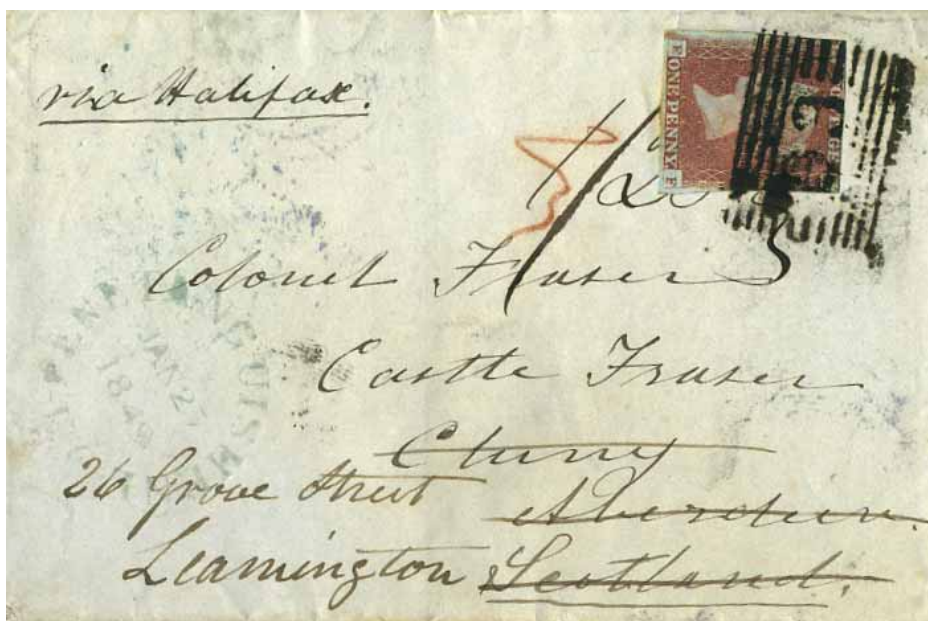 via Halifax.
ONE PENNY
1/2
Colonel Fraser
Castle Fraser
Cluny
26 Grove Street Aberdeen.
Leamington Scotland.
PENETANGUISHENE
JAN 2
184